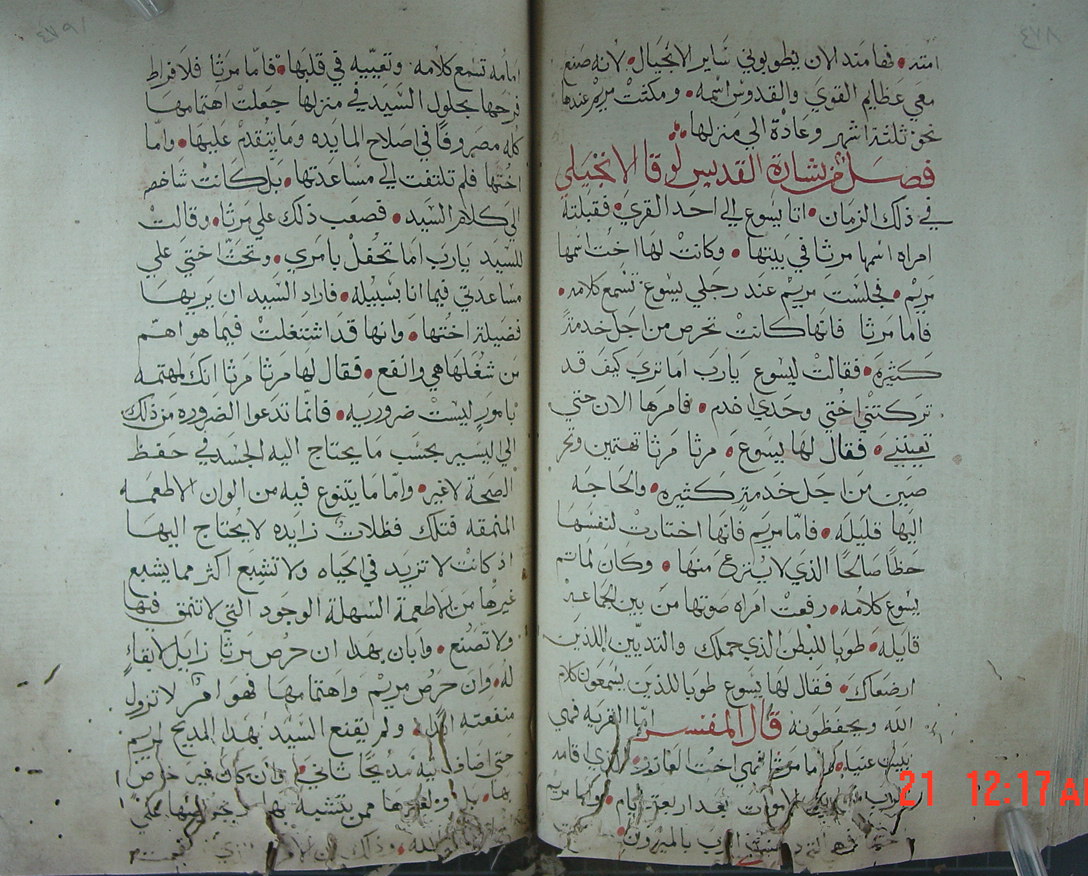 امته • فها متد الان يطوبوني ساير الاجيال • لانه صنع
معي عظايم القوي والقدوس اسمه • ومكثت مريم عندها
نحو ثلثة اشهر وعادة الي منزلها
فصل من بشارة القديس لوقا الانجيلي
في ذلك الزمان • اتا يسوع الي احد القري • فقبلته
امراه اسمها مرثا في بيتها • وكانت لها اخت اسمها
مريم • فجلست مريم عند رجلي يسوع تسمع كلامه •
فاما مرتا فانها كانت تحرص من اجل خدمة
كثيره • فقالت ليسوع يارب اما تري كيف قد
تركتني اختي وحدي اخدم • فامرها الان حتي
تعينني • فقال لها يسوع • مرثا مرثا تهتمين وتحر
صين من اجل خدمة كثيره • والحاجه
اليها قليله • فاما مريم فانها اختارت لنفسها
حظا صالحا الذي لا ينزع منها • وكان لما تم
يسوع كلامه • رفعت امراه صوتها من بين الجماعه
قايله • طوبا للبطن الذي حملك والتديين اللذين
ارضعاك • فقال لها يسوع طوبا للذين يسمعون كلام
الله ويحفظونه قال المفسر اما القريه فهي
بيت عنيا • واما مرثا فهي اخت لعازر • الذي اقامه
الرب من الاموات بعد اربعة ايام • واما مريم
الرب بالميرون
امامه تسمع كلامه وتعبيه في قلبها • فاما مرثا فلافراط
فرحها بحلول السيد في منزلها جعلت اهتمامها
كله مصروفا في اصلاح المايده وما يتقدم عليها • واما
اختها فلم تلتفت الي مساعدتها • بل كانت شاخصه
الي كلام السيد • فصعب ذلك علي مرثا • وقالت
للسيد يارب اما تحفل بامري • وتحث اختي علي
مساعدتي فيما انا بسبيله • فاراد السيد ان يريها
فضيلة اختها • وانها قد اشتغلت فيما هو اهم
من شغلها هي وانفع • فقال لها مرثا مرثا انك لمهتمه
بامور ليست ضروريه • فانما تدعوا الضروره من ذلك
الي اليسير بحسب ما يحتاج اليه الجسد في حفظ
الصحة لا غير • واما ما يتنوع فيه من الوان الاطعمه
المنمقه فتلك فظلات زايده لا يحتاج اليها
اذ كانت لا تزيد في الحياه ولا تشبع اكثر مما يشبع
غيرها من الاطعمة السهلة الوجود التي لا تنمق فيها
ولا تصنع • وابان بهذا ان حرص مرثا زايل لا بقاء
له • وان حرص مريم واهتمامها فهو امر لا تزول
منفعته ابدا • ولم يقنع السيد بهذا المديح لمريم
حتي اضاف اليه مدحا ثاني • وان كان غير خاص
بها • بل ولغيرها ممن يتشبه بها